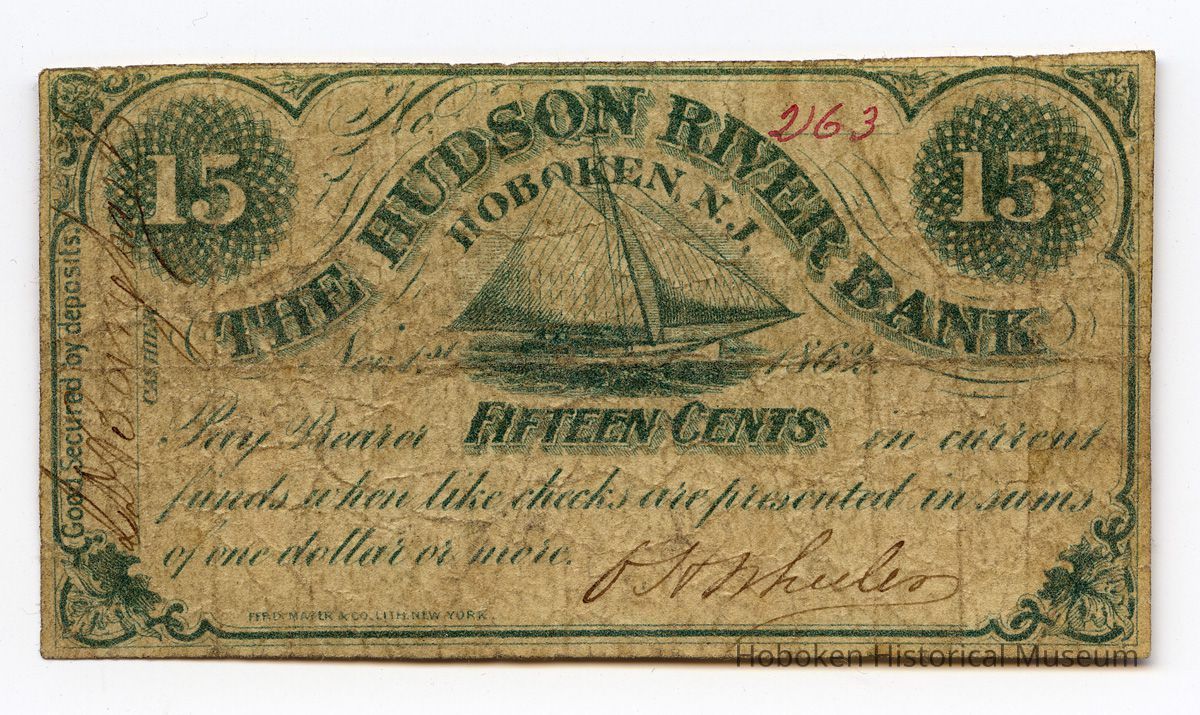 15
No. 2163
15
THE HUDSON RIVER BANK
HOBOKEN, N.J.
Nov. 1st 1862.
Pay Bearer FIFTEEN CENTS in current
funds when like checks are presented in sums
of one dollar or more.
Wheeler
FERD. MAYER & CO. LITH. NEW YORK.
Good, Secured by deposits.
CASHIER.
Hoboken Historical Museum